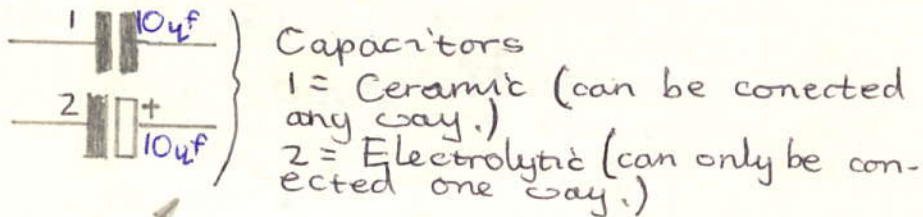 1 10uf
Capacitors
1 = Ceramic (can be conected
any way.)
2 +
10uf
2 = Electrolytic (can only be con-
ected one way.)